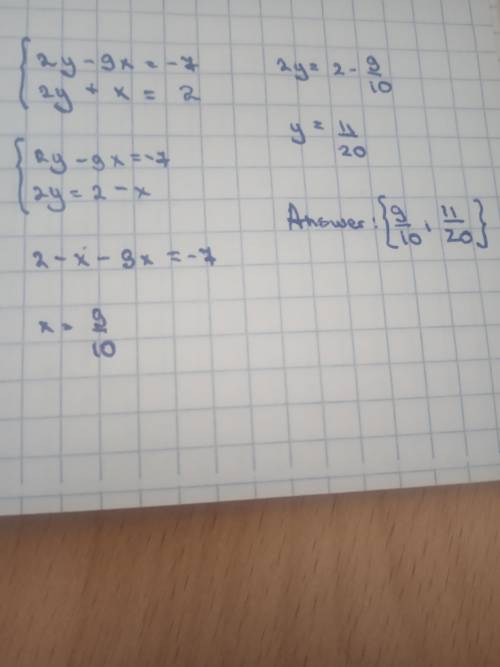 2y - 9x = -7
2y + x = 2
2y - 9x = -7
2y = 2 - x
2 - x - 9x = -7
x = 9/10
2y = 2 - 9/10
y = 11/20
Answer: {9/10, 11/20}